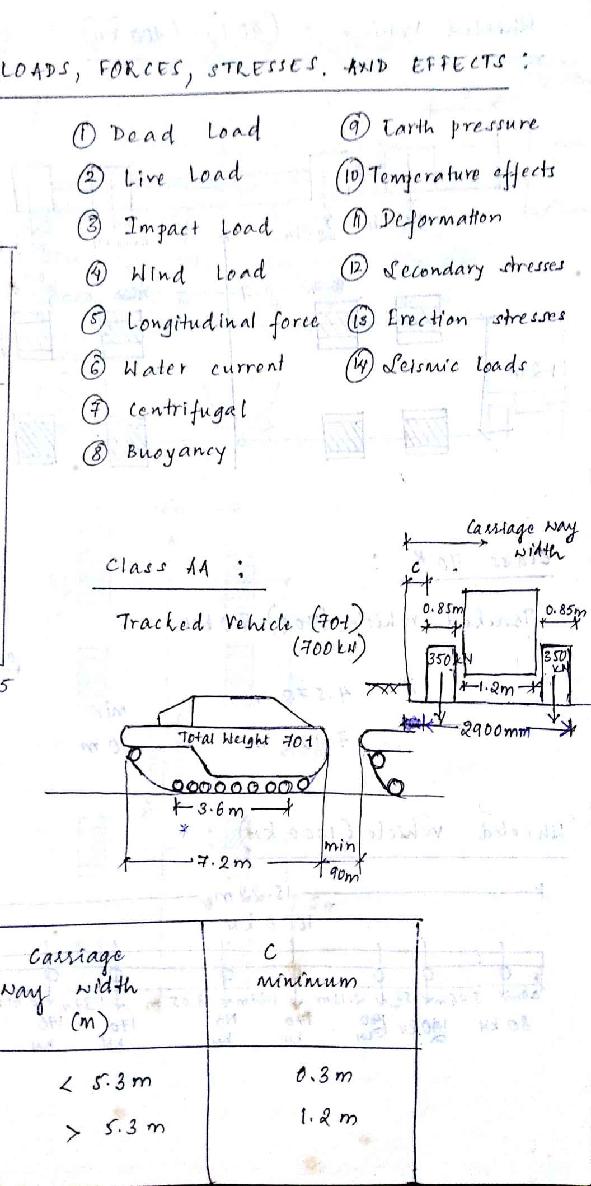 LOADS, FORCES, STRESSES, AND EFFECTS :
① Dead Load
② Live Load
③ Impact Load
④ Wind Load
⑤ Longitudinal force
⑥ Water current
⑦ Centrifugal
⑧ Buoyancy
⑨ Earth pressure
⑩ Temperature effects
⑪ Deformation
⑫ Secondary stresses
⑬ Erection stresses
⑭ Seismic loads
Class AA :
Tracked Vehicle (70t)
(700 kN)
Carriage way
width
C
0.85m
0.85m
350 kN
350 kN
1.2m
2900mm
Total Weight 70t
3.6m
7.2m
min
90m
Carriage
way width
(m)
C
minimum
< 5.3 m
0.3 m
> 5.3 m
1.2 m
5